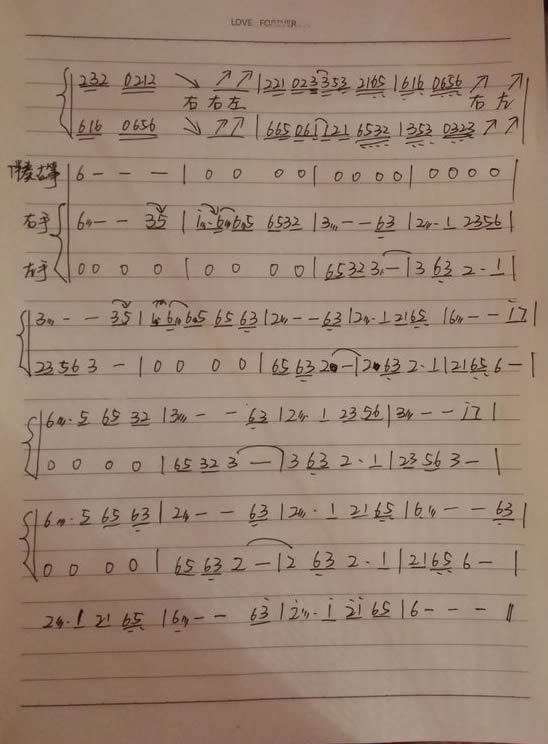 LOVE FOREVER
232 0212 ↘ ↗↗ | 221 023 353 2165 | 616 0656 ↗ ↗
右 右 左 右 左
616 0656 ↘ ↗↗ | 665 061 121 6532 | 1353 0323 ↗ ↗
| 6 - - - | 0 0 0 0 | 0 0 0 0 | 0 0 0 0 |
右手 | 6,,, - - 35 | 1,,,· 6,,, 6,,,5 6532 | 3,,, - - 63 | 2,,,· 1 2356 |
左手 | 0 0 0 0 | 0 0 0 0 | 65 32 3 - | 3 63 2 · 1 |
| 3,,, - - 35 | 1 6,,, 6,,,5 65 63 | 2,,, - - 63 | 2,,,· 1 2165 | 6,,, - - i7 |
23 56 3 - | 0 0 0 0 | 65 63 2 - | 2 63 2 · 1 | 2165 6 - |
| 6,,,· 5 65 32 | 3,,, - - 63 | 2,,,· 1 23 56 | 3,,, - - i7 |
| 0 0 0 0 | 65 32 3 - | 3 63 2 · 1 | 23 56 3 - |
| 6,,,· 5 65 63 | 2,,, - - 63 | 2,,,· 1 2165 | 6,,, - - 63 |
0 0 0 0 | 65 63 2 - | 2 63 2 · 1 | 2165 6 - |
2,,,· 1 21 65 | 6,,, - - 63 | 2,,,· i 2i 65 | 6 - - - ||